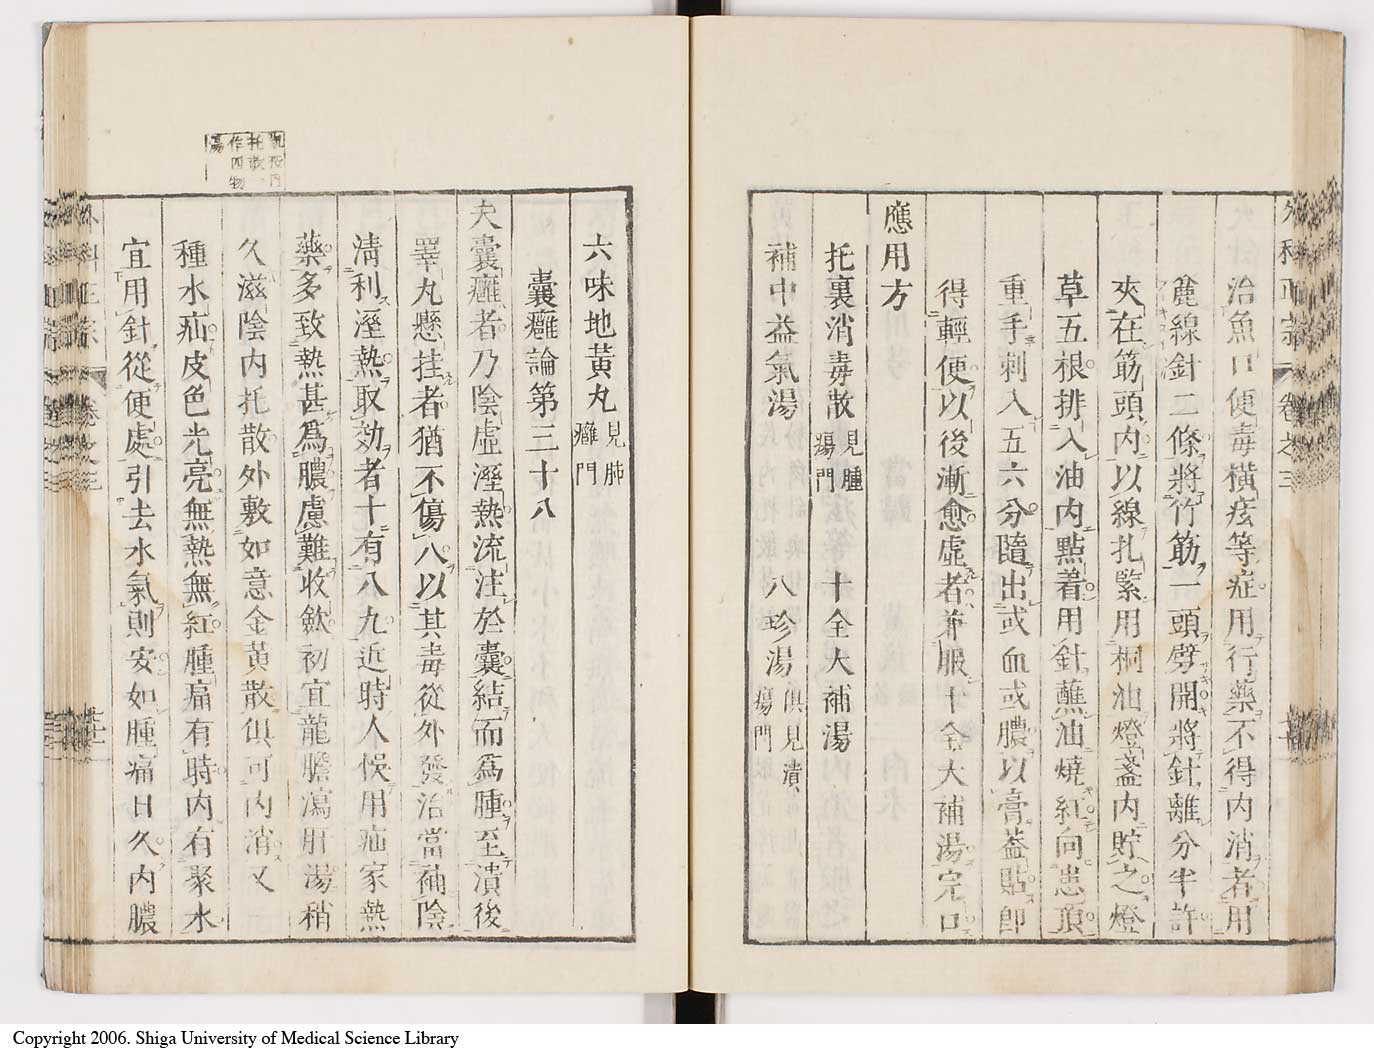 外科正宗 卷之三
治魚口便毒橫痃等症用行藥不得内消者用
麄線針二條將竹筋一頭劈開將針離分半許
夾在筋頭内以線扎緊用桐油燈盞内貯之燈
草五根排入油内點着用針蘸油燒紅向患頂
重手刺入五六分隨出或血或膿以膏蓋貼即
得輕便以後漸愈虛者兼服十全大補湯完口
應用方
托裏消毒散見腫瘍門 十全大補湯
補中益氣湯 八珍湯俱見潰瘍門
六味地黃丸見肺癰門
囊癰論第三十八
夫囊癰者乃陰虛溼熱流注於囊結而爲腫至潰後
睪丸懸挂者猶不傷人以其毒從外發治當補陰
清利溼熱取効者十有八九近時人悞用疝家熱
藥多致熱甚爲膿慮難收斂初宜龍膽瀉肝湯稍
久滋陰内托散外敷如意金黃散俱可内消又一
種水疝皮色光亮無熱無紅腫痛有時内有聚水
宜用針從便處引去水氣則安如腫痛日久内膿
託按内
托散
作四物
湯
外科正宗 卷之三
Copyright 2006. Shiga University of Medical Science Library